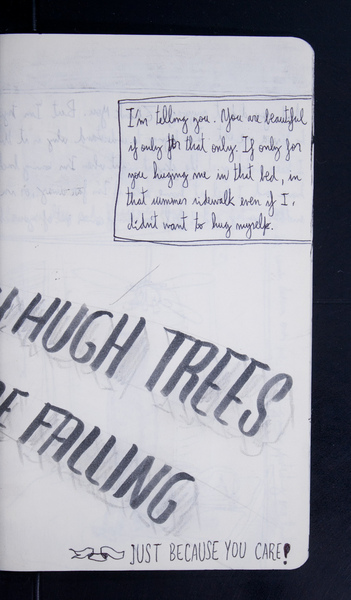 I'm telling you. You are beautiful
if only for that only. If only for
you huging me in that bed, in
that summer sidewalk even if I,
didn't want to hug myself.
HUGH TREES
FALLING
JUST BECAUSE YOU CARE!